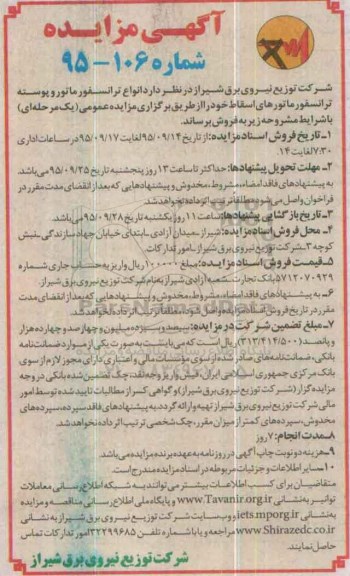 آگهی مزایده
شماره ۱۰۶-۹۵
شرکت توزیع نیروی برق شیراز در نظر دارد انواع ترانسفورماتور و پوسته
ترانسفورماتورهای اسقاط خود را از طریق برگزاری مزایده عمومی (یک مرحله‌ای)
با شرایط مشروحه زیر به فروش برساند.
۱- تاریخ فروش اسناد مزایده: از تاریخ ۹۵/۰۹/۱۴ لغایت ۹۵/۰۹/۱۷ در ساعات اداری
۷:۳۰ لغایت ۱۴
۲- مهلت تحویل پیشنهادها: حداکثر تا ساعت ۱۳ روز پنجشنبه تاریخ ۹۵/۰۹/۲۵ می‌باشد.
به پیشنهادهای فاقد امضاء، مشروط، مخدوش و پیشنهادهایی که بعد از انقضای مدت مقرر در
فراخوان واصل می‌شود مطلقاً ترتیب اثر داده نخواهد شد.
۳- تاریخ بازگشایی پیشنهادها: ساعت ۱۱ روز یکشنبه تاریخ ۹۵/۰۹/۲۸ می‌باشد.
۴- محل فروش اسناد مزایده: شیراز میدان آزادی ابتدای خیابان جهاد سازندگی نبش
کوچه ۳ شرکت توزیع نیروی برق شیراز - امور تدارکات.
۵- قیمت فروش اسناد مزایده: مبلغ ۱۰۰۰۰۰ ریال واریز به حساب جاری شماره
۵۷۱۲۰۷۰۹۲۹ بانک تجارت شعبه آزادی شیراز به نام شرکت توزیع نیروی برق شیراز.
۶- به پیشنهادهای فاقد امضاء، مشروط، مخدوش و پیشنهادهایی که بعد از انقضای مدت
مقرر در تاریخ فروش اسناد مزایده واصل شود، مطلقاً ترتیب اثر داده نخواهد شد.
۷- مبلغ تضمین شرکت در مزایده: سیصد و سیزده میلیون و چهارصد و چهارده هزار
و پانصد (۳۱۳/۴۱۴/۵۰۰) ریال است که می‌بایست به صورت یکی از موارد ضمانت‌نامه
بانکی، ضمانت‌نامه‌های صادره از سوی مؤسسات مالی و اعتباری دارای مجوز لازم از سوی
بانک مرکزی جمهوری اسلامی ایران، فیش واریز وجه نقد، چک تضمین شده بانکی در وجه
مزایده‌گزار (شرکت توزیع نیروی برق شیراز) و گواهی کسر از مطالبات تایید شده توسط امور
مالی شرکت توزیع نیروی برق شیراز تهیه و ارائه گردد. به پیشنهادهای فاقد سپرده، سپرده‌های
مخدوش، سپرده‌های کمتر از میزان مقرر، چک شخصی ترتیب اثر داده نخواهد شد.
۸- مدت انجام: ۷ روز
۹- هزینه دو نوبت چاپ آگهی در روزنامه به عهده برنده مزایده می‌باشد.
۱۰- سایر اطلاعات و جزئیات مربوطه در اسناد مزایده مندرج است.
متقاضیان برای کسب اطلاعات بیشتر می‌توانند به شبکه اطلاع رسانی معاملات
توانیر به نشانی www.Tavanir.org.ir و پایگاه ملی اطلاع رسانی مناقصه و مزایده
به نشانی iets.mporg.ir و وب سایت شرکت توزیع نیروی برق شیراز به نشانی
www.Shirazedc.co.ir مراجعه و یا با شماره تلفن ۳۲۲۹۹۶۸۵ امور تدارکات تماس
حاصل نمایند.
شرکت توزیع نیروی برق شیراز